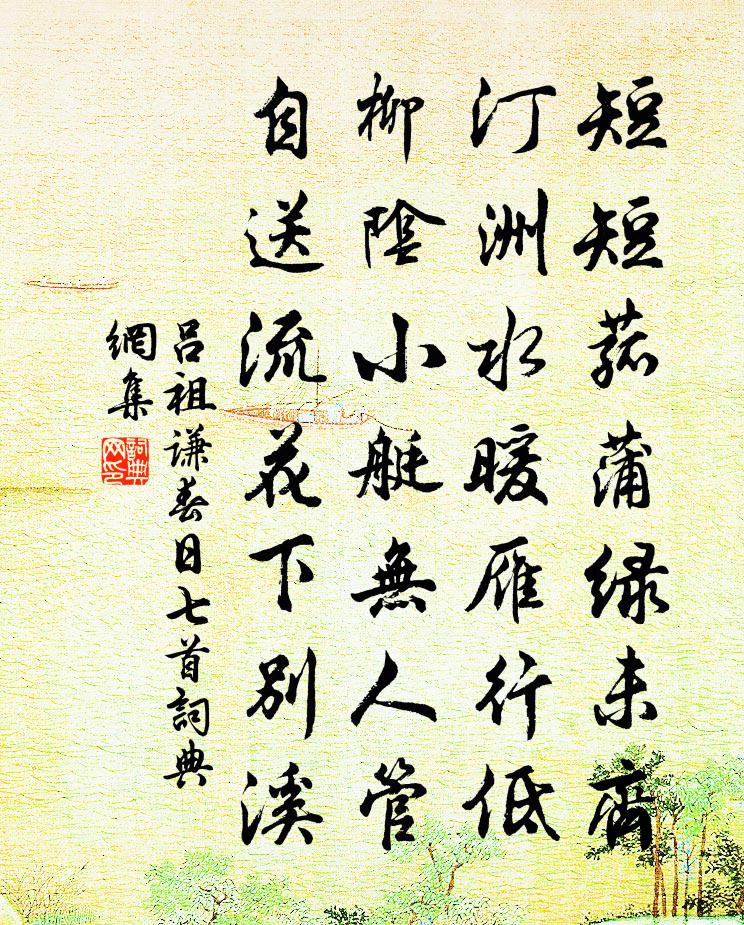 短短菰蒲绿未齊
汀洲水暖雁行低
柳陰小艇無人管
自送流花下别溪
吕祖谦春日七首詞典
網集
詞典
网印